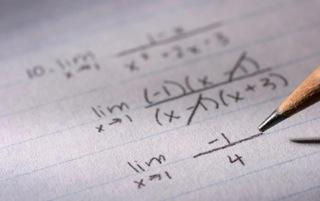 10. lim x→1 (1-x)/(x² + 2x - 3)
lim x→1 (-1)(x - 1)/(x - 1)(x + 3)
lim x→1 -1/4